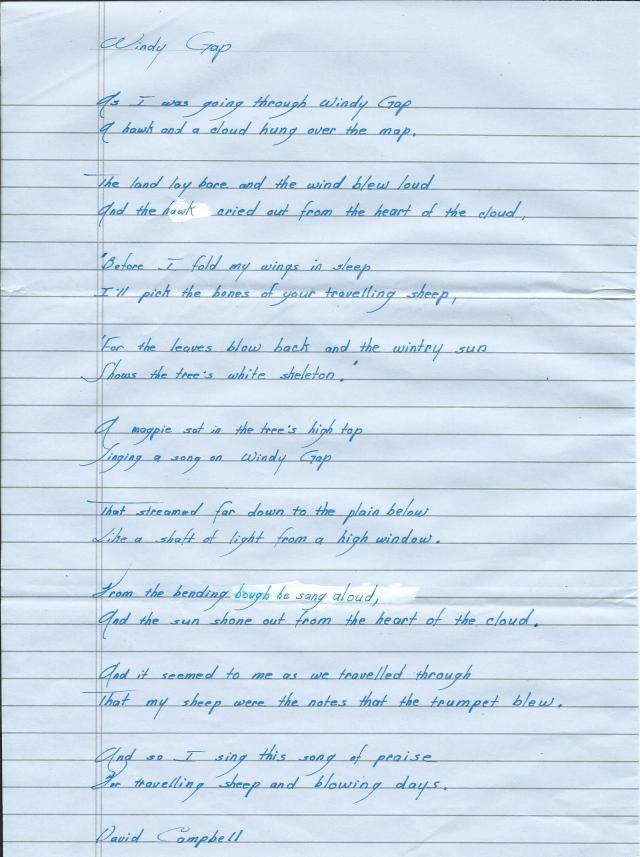 Windy Gap
As I was going through Windy Gap
A hawk and a cloud hung over the map.
The land lay bare and the wind blew loud
And the hawk cried out from the heart of the cloud,
'Before I fold my wings in sleep
I'll pick the bones of your travelling sheep,
'For the leaves blow back and the wintry sun
Shows the tree's white skeleton.'
A magpie sat in the tree's high top
Singing a song on Windy Gap
That streamed far down to the plain below
Like a shaft of light from a high window.
From the bending bough he sang aloud,
And the sun shone out from the heart of the cloud.
And it seemed to me as we travelled through
That my sheep were the notes that the trumpet blew.
And so I sing this song of praise
For travelling sheep and blowing days.
David Campbell